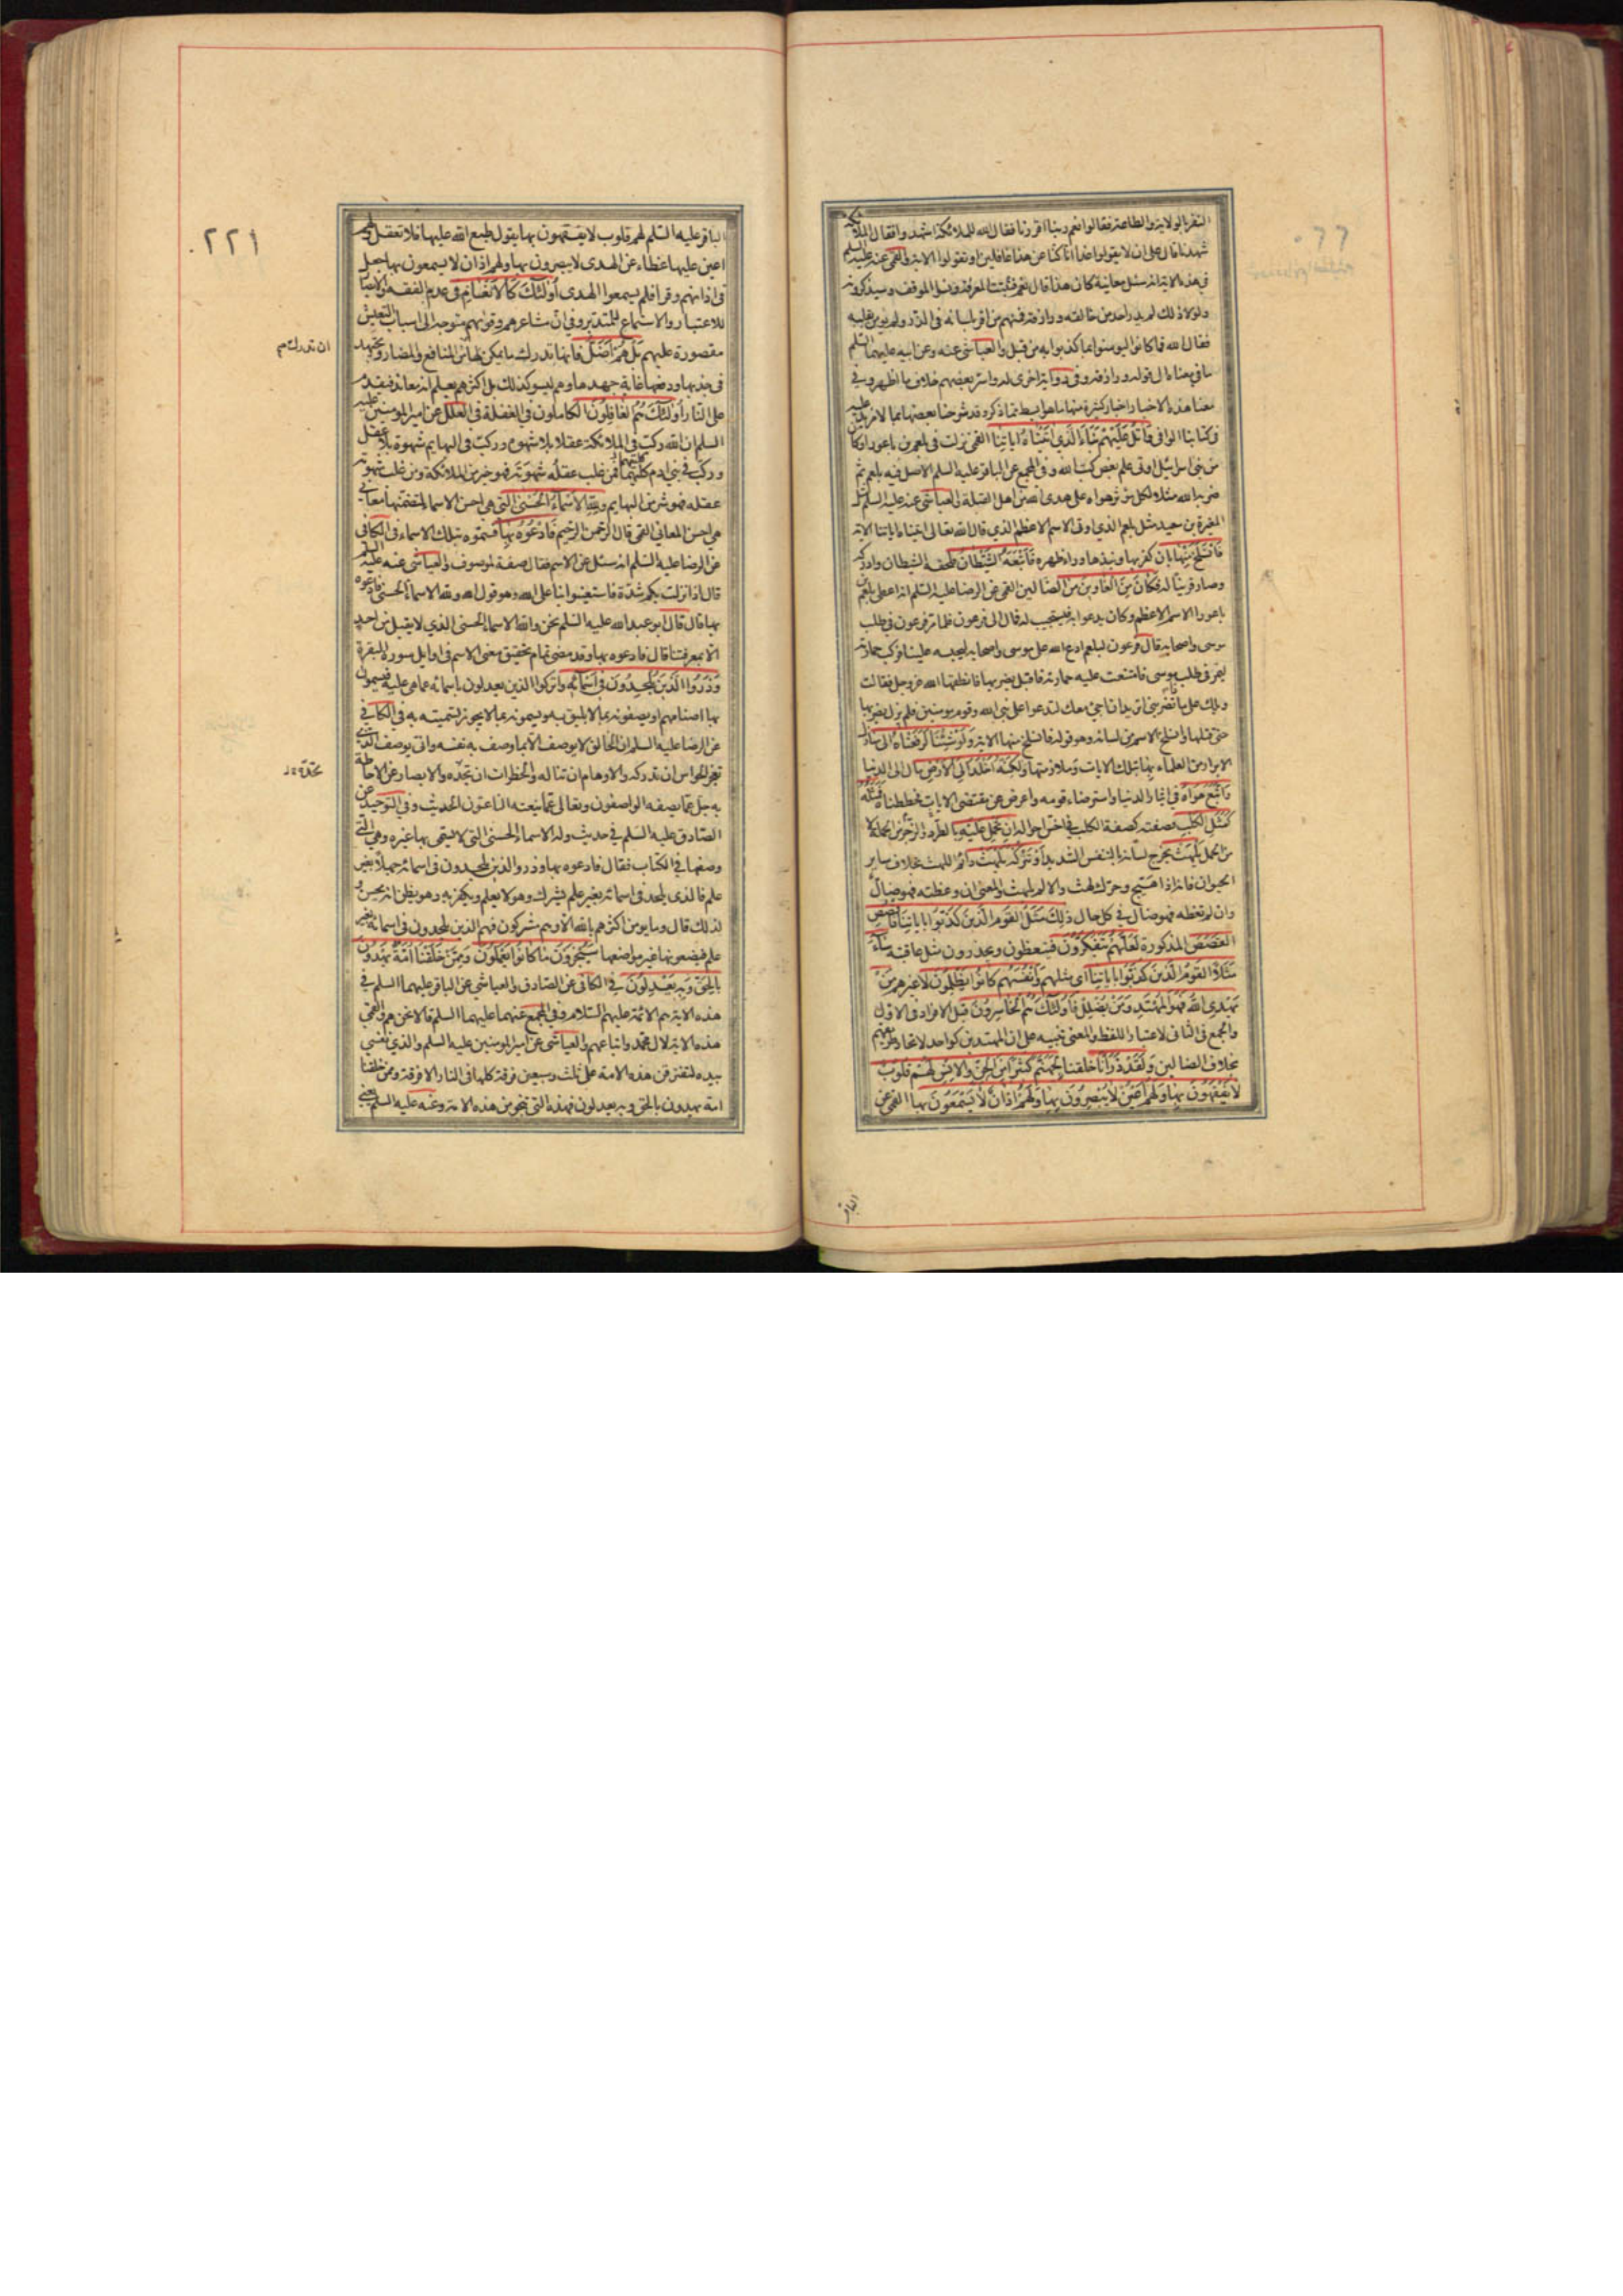 النفر بالولاية والطاعة فقالوا نعم ربنا اقررنا فقال الله للملائكة اشهدوا فقال الملائكة
شهدنا قال على ان لا يقولوا غدا انا كنا عن هذا غافلين او تقولوا الاية والقمي عنه عليه السلم
في هذه الاية انه سئل معاينة كان هذا قال نعم فثبتت المعرفة ونسوا الموقف وسيذكرونه
ولولا ذلك لم يدر احد من خالقه ورازقه فمنهم من اقر بلسانه في الذر ولم يؤمن بقلبه
فقال الله فما كانوا ليومنوا بما كذبوا به من قبل والعياشي عنه وعن ابيه عليهما السلم
ما في معناه الى قوله ورازقه وفي رواية اخرى له واسر بعضهم خلاف ما اظهر وفي
معنا هذه الاخبار اخبار كثيرة منها ما هو ابسط مما ذكر وقد شرحنا بعضها بما لا مزيد عليه
في كتابنا الوافي واتل عليهم نبأ الذي اتيناه اياتنا القمي نزلت في بلعم بن باعورا وكان
من بني اسرائيل اوتي علم بعض كتب الله وفي المجمع عن الباقر عليه السلم الاصل فيه بلعم ثم
ضربه الله مثلا لكل مؤثر هواه على هدى الله من اهل القبلة والعياشي عنه عليه السلم مثل
المغيرة بن سعيد مثل بلعم الذي اوتي الاسم الاعظم الذي قال الله تعالى اتيناه اياتنا الاية
فانسلخ منها بان كفر بها ونبذها وراء ظهره فاتبعه الشيطان فلحقه الشيطان وادركه
وصار قرينا له فكان من الغاوين من الضالين القمي عن الرضا عليه السلم انه اعطي بلعم بن
باعورا الاسم الاعظم وكان يدعو به فيستجيب له فمال الى فرعون فلما مر فرعون في طلب
موسى واصحابه قال فرعون لبلعم ادع الله على موسى واصحابه ليحبسه علينا فركب حمارته
ليمر في طلب موسى فامتنعت عليه حمارته فاقبل يضربها فانطقها الله عز وجل فقالت
ويلك على ما تضربني اتريد ان اجيء معك لتدعو على نبي الله وقوم مومنين فلم يزل يضربها
حتى قتلها وانسلخ الاسم من لسانه وهو قوله فانسلخ منها الاية ولو شئنا لرفعناه الى منازل
الابرار من العلماء بها بتلك الايات وملازمتها ولكنه اخلد الى الارض مال الى الدنيا
واتبع هواه في ايثار الدنيا واسترضاء قومه واعرض عن مقتضى الايات فحططناه فمثله
كمثل الكلب فصفته كصفة الكلب في اخس احواله ان تحمل عليه بالطرد والزجر من الحملة لا
من الحمل يلهث يخرج لسانه بالتنفس الشديد او تتركه يلهث دائم اللهث بخلاف ساير
الحيوان فانه اذا هيج وحرك لهث والا لم يلهث والمعنى ان وعظته فهو ضال
وان لم تعظه فهو ضال في كل حال ذلك مثل القوم الذين كذبوا باياتنا فاقصص
القصص المذكورة لعلهم يتفكرون فيتعظون ويحذرون مثل عاقبته ساء
مثلا القوم الذين كذبوا باياتنا اي مثلهم وانفسهم كانوا يظلمون لا غيرهم من
يهدي الله فهو المهتدي ومن يضلل فاولئك هم الخاسرون قيل الافراد في الاول
والجمع في الثاني لاعتبار اللفظ والمعنى تنبيه على ان المهتدين كواحد لاتحاد طريقهم
بخلاف الضالين ولقد ذرأنا خلقنا لجهنم كثيرا من الجن والانس لهم قلوب
لا يفقهون بها ولهم اعين لا يبصرون بها ولهم اذان لا يسمعون بها القمي عن
الباقر
٢٢١
الباقر عليه السلم لهم قلوب لا يفقهون بها يقول طبع الله عليها فلا تعقل ولهم
اعين عليها غطاء عن الهدى لا يبصرون بها ولهم اذان لا يسمعون بها جعل
في اذانهم وقرا فلم يسمعوا الهدى اولئك كالانعام في عدم الفقه والابصار
للاعتبار والاستماع للتدبر وفي ان مشاعرهم وقواهم متوجه الى اسباب التعيش
مقصورة عليهم بل هم اضل فانها تدرك ما يمكن لها من المنافع والمضار وتجتهد
ان تدرك م
في جذبها ودفعها غاية جهدها وهم ليسو كذلك بل اكثرهم يعلم انه معاند فيقدم
على النار اولئك هم الغافلون الكاملون في الغفلة في العلل عن امير المومنين عليه
السلم ان الله ركب في الملائكة عقلا بلا شهوة وركب في البهايم شهوة بلا عقل
وركب في بني ادم كلتيهما فمن غلب عقله شهوته فهو خير من الملائكة ومن غلب شهوته
عقله فهو شر من البهايم ولله الاسماء الحسنى التي هي احسن الاسماء لتضمنها معاني
هي احسن المعاني القمي قال الرحمن الرحيم فادعوه بها فسموه بتلك الاسماء في الكافي
عن الرضا عليه السلم انه سئل عن الاسم فقال صفة لموصوف والعياشي عنه عليه السلم
قال اذا نزلت بكم شدة فاستعينوا بنا على الله وهو قول الله ولله الاسماء الحسنى فادعوه
بها قال قال ابو عبد الله عليه السلم نحن والله الاسماء الحسنى الذي لا يقبل من احد
الا بمعرفتنا قال فادعوه بها وقد مضى تمام تحقيق معنى الاسم في اوايل سورة البقرة
وذروا الذين يلحدون في اسمائه واتركوا الذين يعدلون باسمائه عما هي عليه فيسمون
بها اصنامهم او يصفونه بما لا يليق به ويسمونه بما لا يجوز تسميته به في الكافي
عن الرضا عليه السلم ان الخالق لا يوصف الا بما وصف به نفسه وانى يوصف الذي
تعجز الحواس ان تدركه والاوهام ان تناله والخطرات ان تحده والابصار عن الاحاطة
تحدّه
به جل عما يصفه الواصفون وتعالى عما ينعته الناعتون الحديث وفي التوحيد عن
الصادق عليه السلم في حديث وله الاسماء الحسنى التي لا يسمى بها غيره وهي التي
وصفها في الكتاب فقال فادعوه بها وذروا الذين يلحدون في اسمائه جهلا بغير
علم فالذي يلحد في اسمائه بغير علم يشرك وهو لا يعلم ويكفر به وهو يظن انه يحسن و
لذلك قال وما يومن اكثرهم بالله الا وهم مشركون فهم الذين يلحدون في اسمائه بغير
علم فيضعونها غير مواضعها سيجزون ما كانوا يعملون وممن خلقنا امة يهدون
بالحق وبه يعدلون في الكافي عن الصادق والعياشي عن الباقر عليهما السلم في
هذه الاية هم الائمة عليهم السلام وفي المجمع عنهما عليهما السلم قالا نحن هم والقمي
هذه الاية لال محمد واتباعهم والعياشي عن امير المومنين عليه السلم والذي نفسي
بيده لتفترقن هذه الامة على ثلث وسبعين فرقة كلها في النار الا فرقة وممن خلقنا
امة يهدون بالحق وبه يعدلون فهذه التي تنجو من هذه الامة وعنه عليه السلم يعني